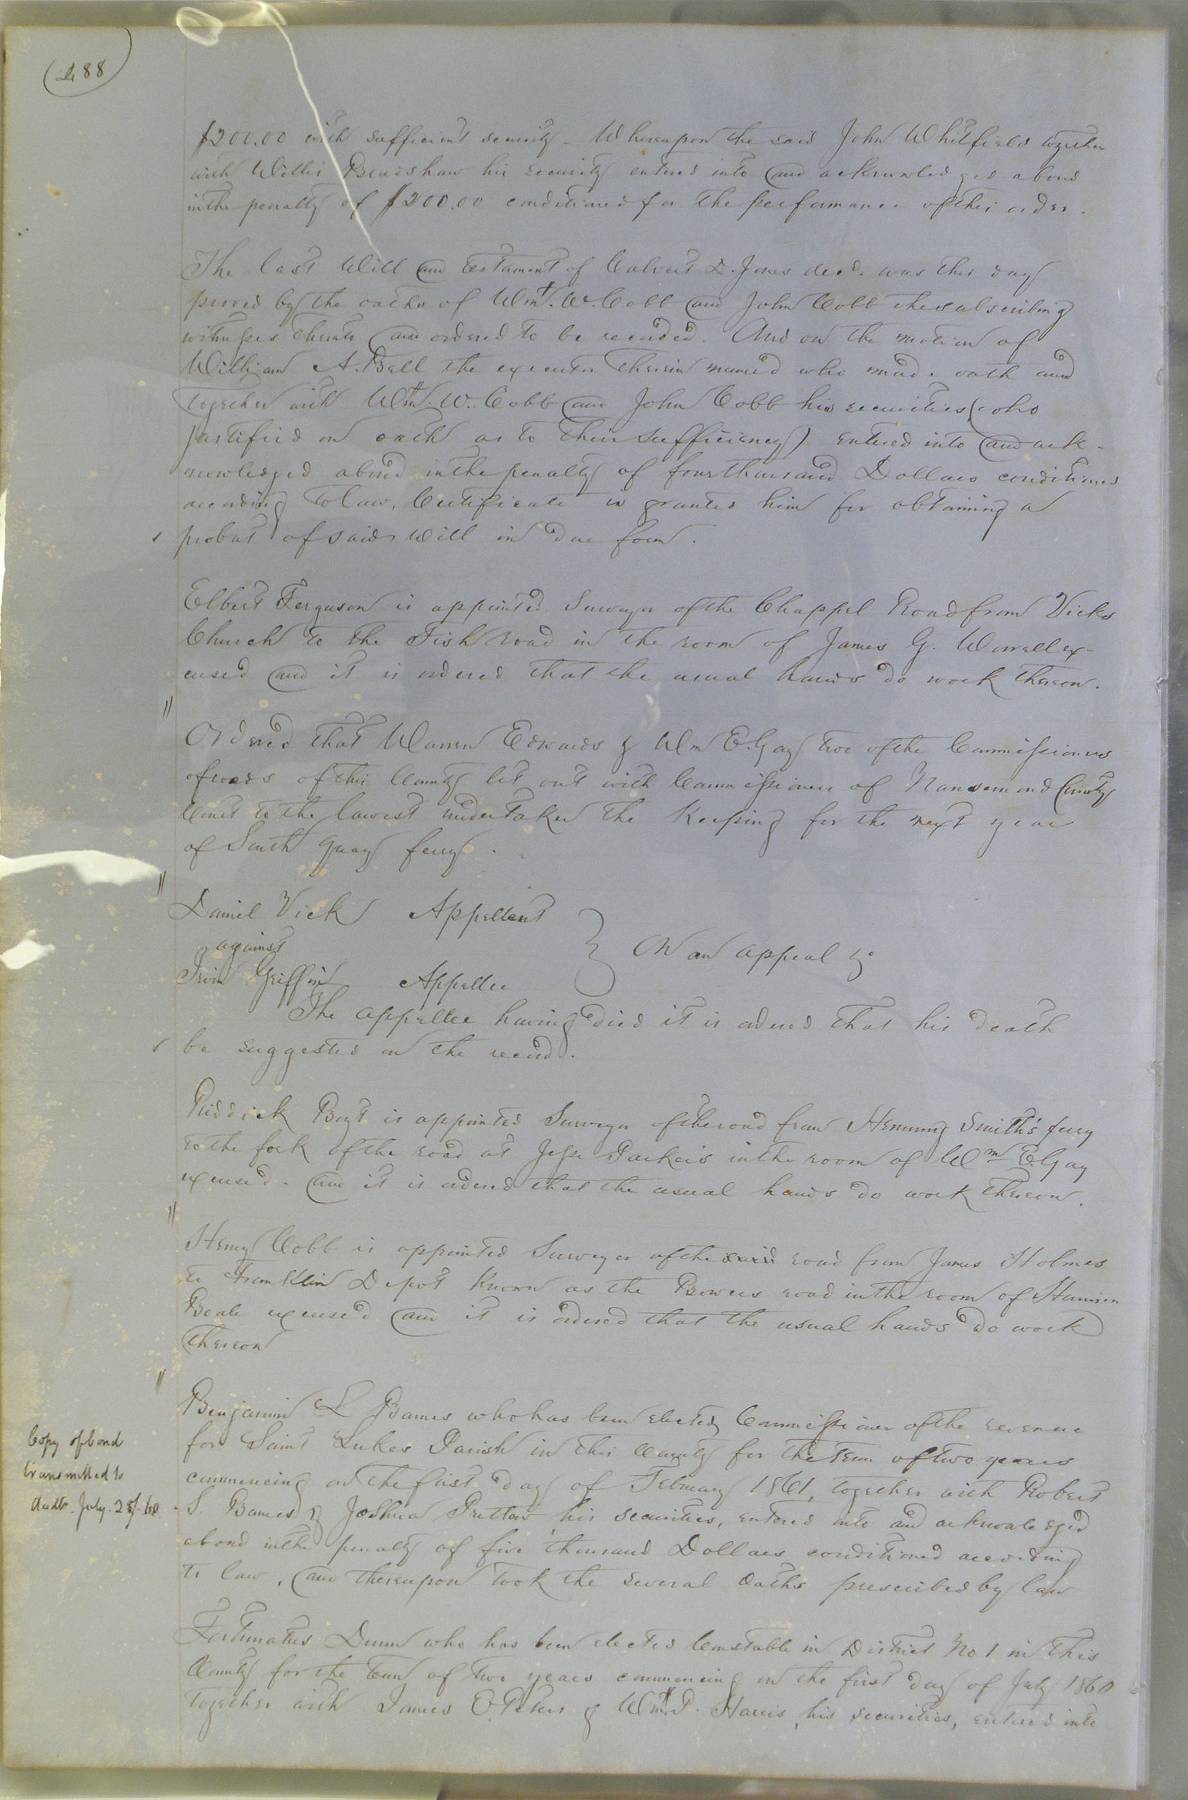 488
$200.00 with sufficient security. Whereupon the said John Whitfield together
with Willis Bradshaw his security entered into and acknowledged a bond
in the penalty of $200.00 conditioned for the performance of this order.
The last Will and testament of Calvert D. Jones decd. was this day
proved by the oaths of Wm. W. Cobb and John Cobb the subscribing
witnesses thereto and ordered to be recorded. And on the motion of
William A. Bell the executor therein named who made oath and
together with Wm. W. Cobb and John Cobb his securities (who
justified on oath as to their sufficiency) entered into and ack-
nowledged a bond in the penalty of four thousand Dollars conditioned
according to law, Certificate is granted him for obtaining a
probat of said Will in due form.
Elbert Ferguson is appointed Surveyor of the Chappel Road from Vicks
Church to the Fish road in the room of James G. Worrell ex-
cused and it is ordered that the usual hands do work thereon.
"
Ordered that Warren Edwards & Wm E. Gay two of the Commissioners
of roads of this County let out with Commissioners of Nansemond County
Court to the lowest undertaker the Keeping for the next year
of South Quay ferry.
"
Daniel Vick Appellant
against } On an appeal &c
Irvin Griffin Appellee
The appellee having died it is ordered that his death
be suggested on the record.
Riddick Boyt is appointed Surveyor of the road from Henning Smith's ferry
to the fork of the road at Jesse Parker's in the room of Wm E. Gay
excused. and it is ordered that the usual hands do work thereon.
"
Henry Cobb is appointed Surveyor of the road from James Holmes
to Franklin Depot Known as the Bowers road in the room of Harrison
Beale excused and it is ordered that the usual hands do work
thereon
"
Benjamin L Barnes who has been elected Commissioner of the revenue
for Saint Lukes Parish in this County for the term of two years
commencing on the first day of February 1861, together with Robert
S. Barnes & Joshua Pretlow his securities, entered into and acknowledged
a bond in the penalty of five thousand Dollars conditioned according
to law, and thereupon took the several Oaths prescribed by law
Copy of bond
transmitted to
Audt. July 28/60
Fortunatus Dunn who has been elected Constable in District No 1 in this
County for the term of two years commencing on the first day of July 1860
together with James E. Peters & Wm. P. Harris, his securities, entered into